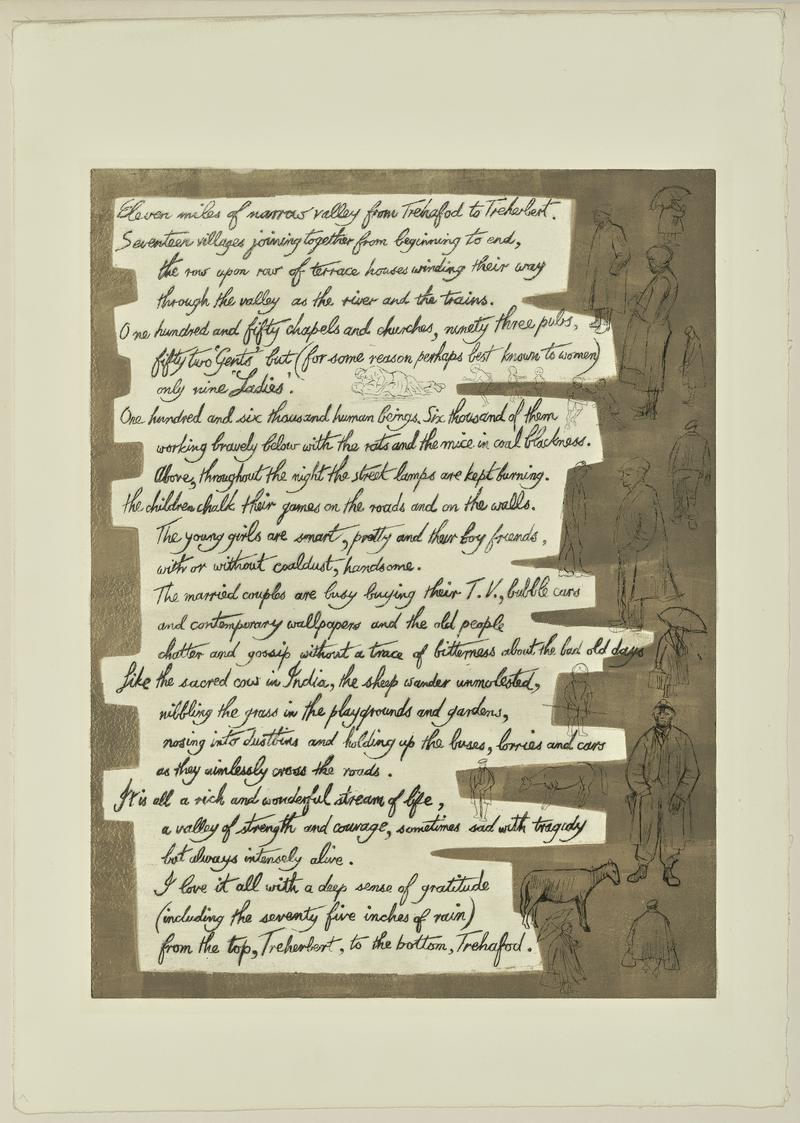 Eleven miles of narrow valley from Trehafod to Treherbert.
Seventeen villages joining together from beginning to end,
the row upon row of terrace houses winding their way
through the valley as the river and the trains.
One hundred and fifty chapels and churches, ninety three pubs,
fifty two 'Gents' but (for some reason perhaps best known to women)
only nine 'Ladies'.
One hundred and six thousand human beings. Six thousand of them
working bravely below with the rats and the mice in coal blackness.
Above, throughout the night the street lamps are kept burning.
the children chalk their games on the roads and on the walls.
The young girls are smart, pretty and their boy friends,
with or without coaldust, handsome.
The married couples are busy buying their T.V., bubble cars
and contemporary wallpapers and the old people
chatter and gossip without a trace of bitterness about the bad old days
Like the sacred cow in India, the sheep wander unmolested,
nibbling the grass in the playgrounds and gardens,
nosing into dustbins and holding up the buses, lorries and cars
as they aimlessly cross the roads.
It is all a rich and wonderful stream of life,
a valley of strength and courage, sometimes sad with tragidy
but always intensely alive.
I love it all with a deep sense of gratitude
(including the seventy five inches of rain)
from the top, Treherbert, to the bottom, Trehafod.